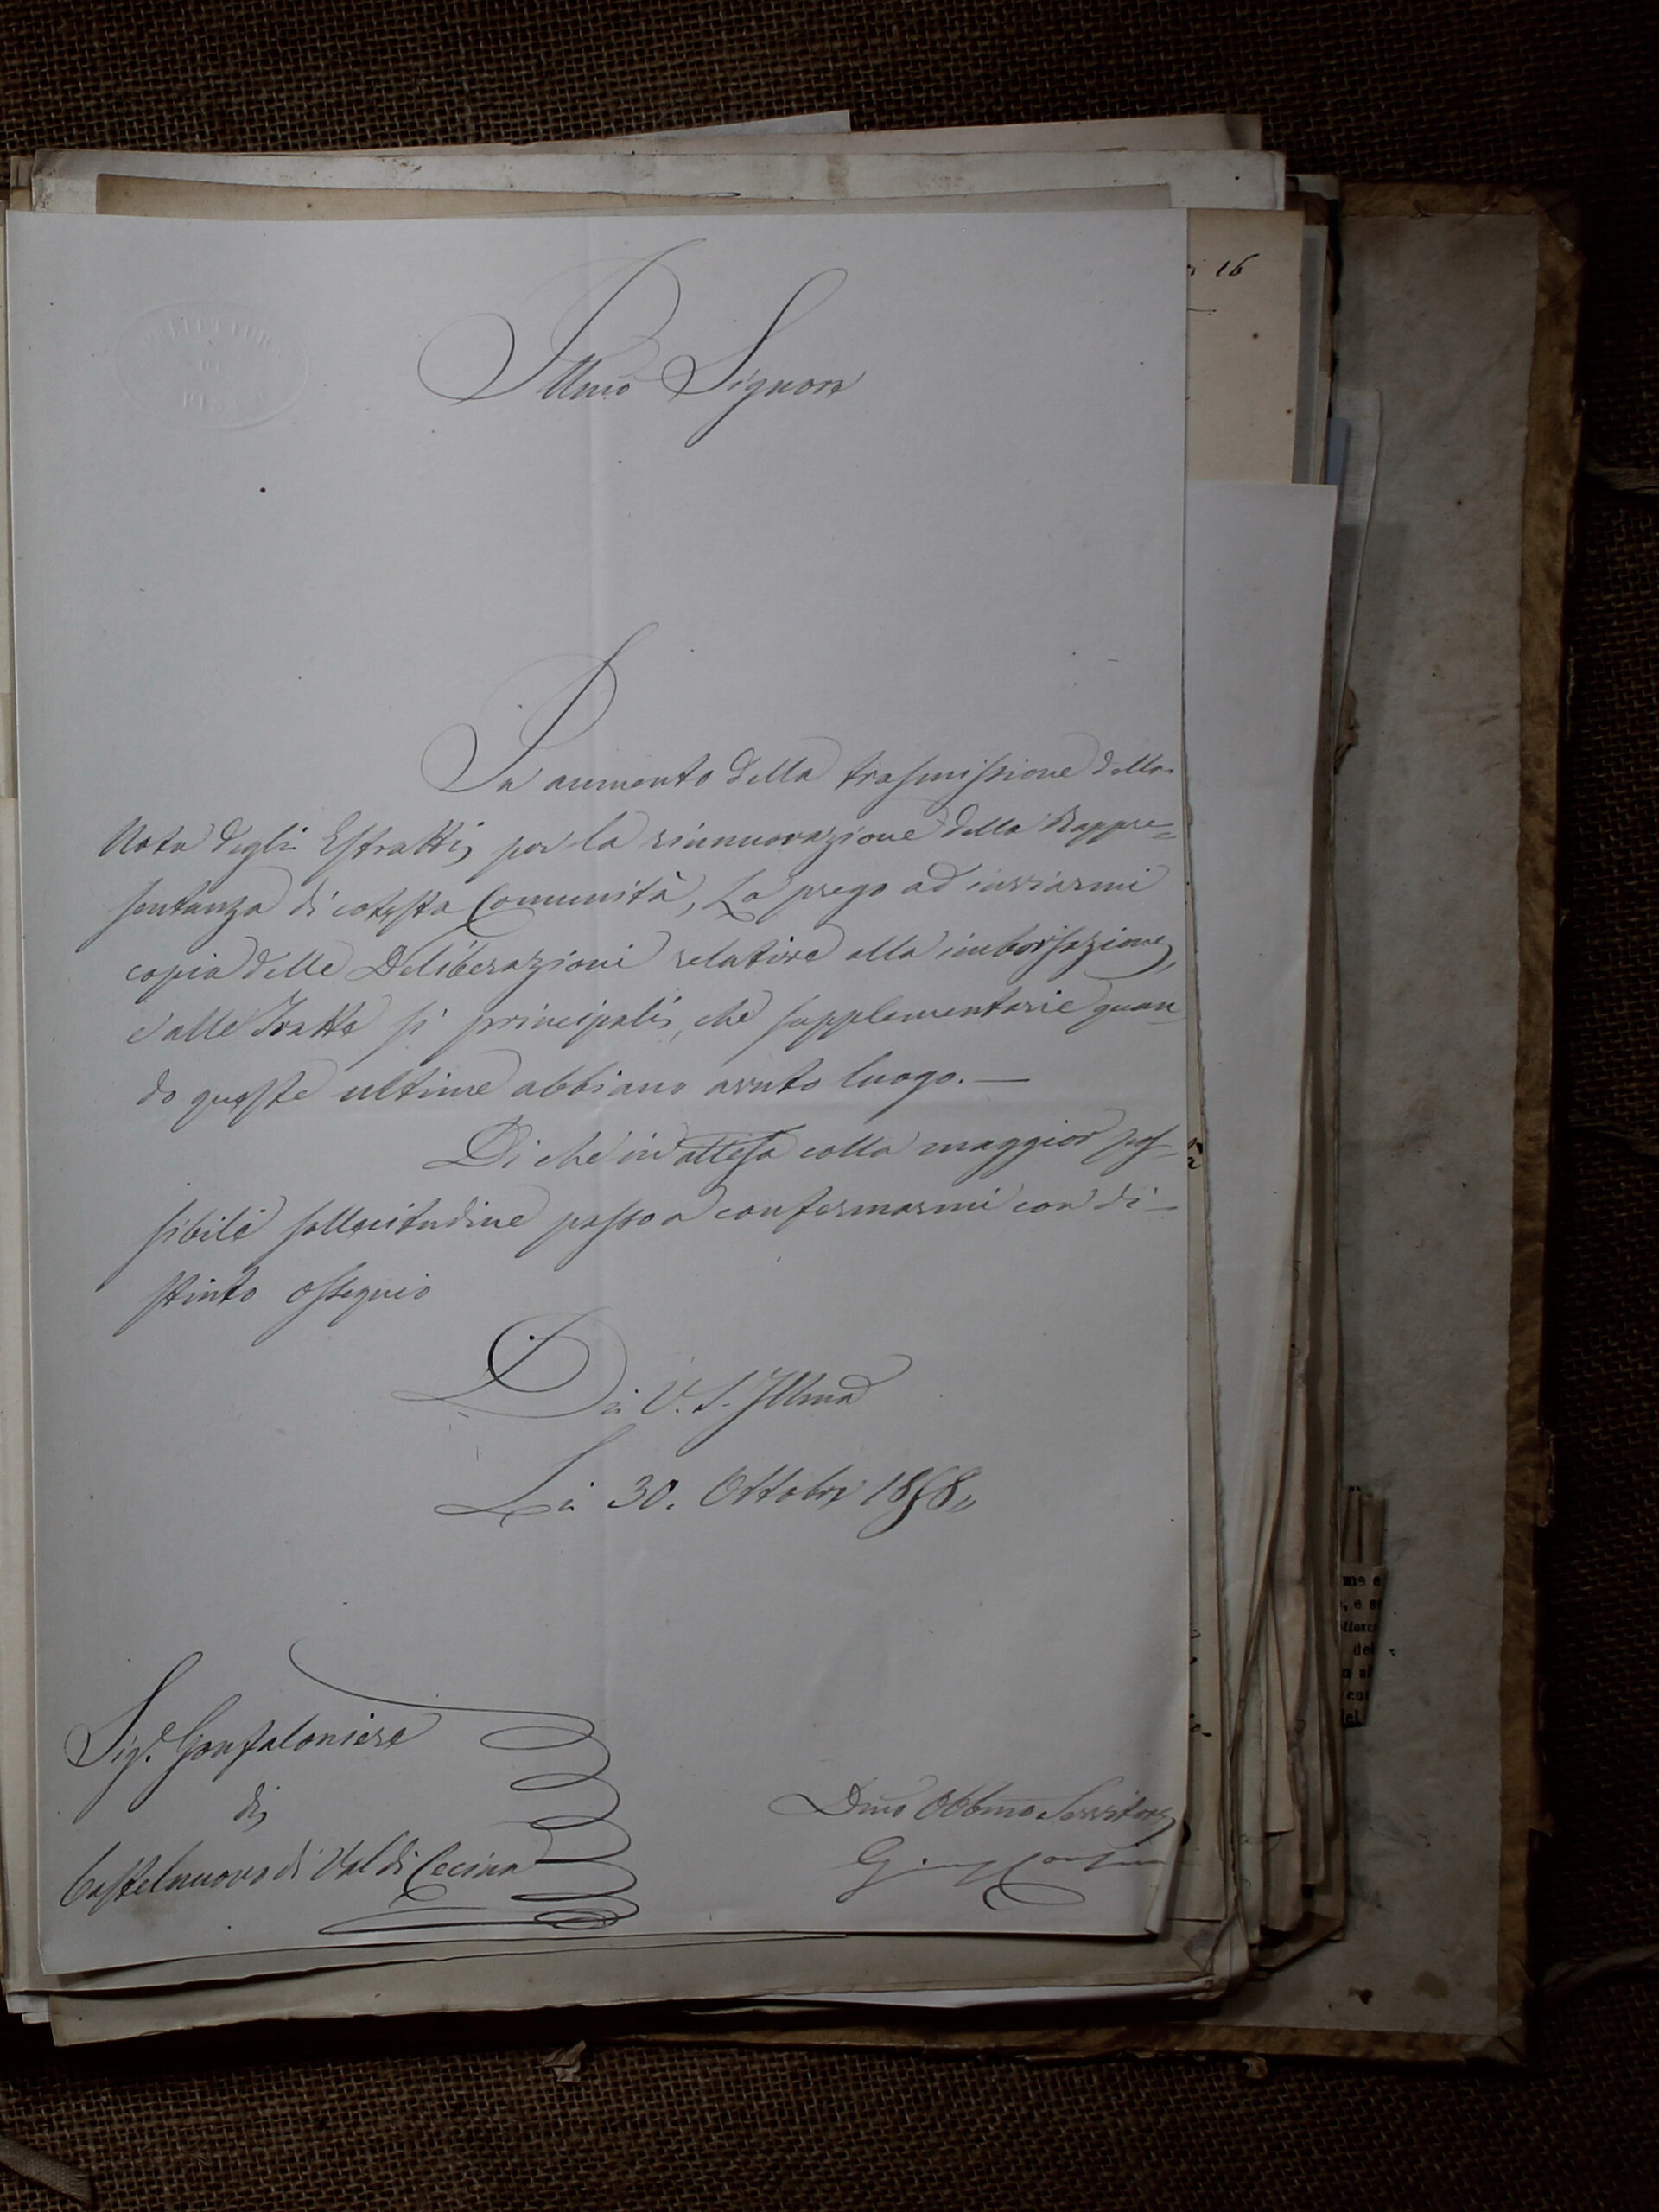 Illmo Signore
In aumento della trasmissione della
Nota degli Estratti per la rinnuovazione della Rappre=
sentanza di cotesta Comunità, La prego ad inviarmi
copia delle Deliberazioni relative alla imborsazione,
e alle Tratte sì principali, che supplementarie quan-
do queste ultime abbiano avuto luogo.—
Di che in attesa colla maggior pos-
sibile sollecitudine passo a confermarmi con di-
stinto ossequio
Di V. S. Illma
Li 30. Ottobre 1858„
Sig.e Gonfaloniere
di
Castelnuovo di Val di Cecina
Dmo Obbmo Servitore
16